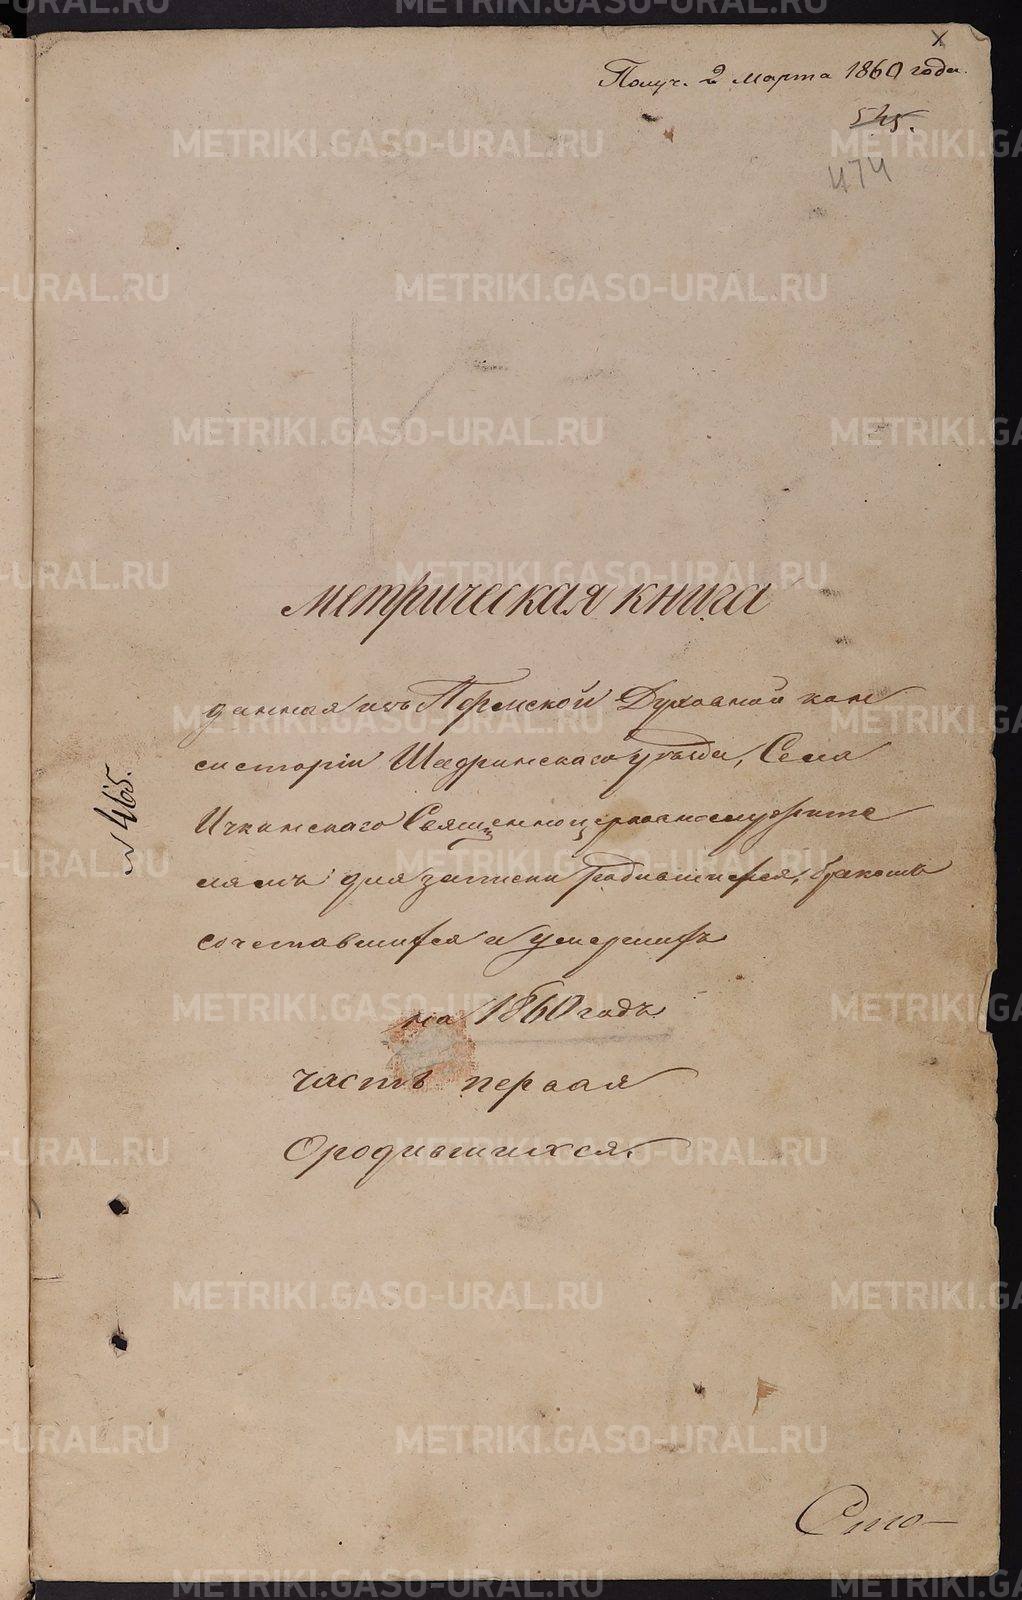 х
Получ. 2 марта 1860 года.
545.
474
Метрическая книга
данная изъ Пермской Духовной кон
систоріи Шадринскаго уѣзда, Села
Ичкинскаго Священноцерковнослужите
лямъ для записки родившихся, бракомъ
сочетавшихся и умершихъ
на 1860 годъ.
часть первая
О родившихся.
№ 465.
Сто—
METRIKI.GASO-URAL.RU